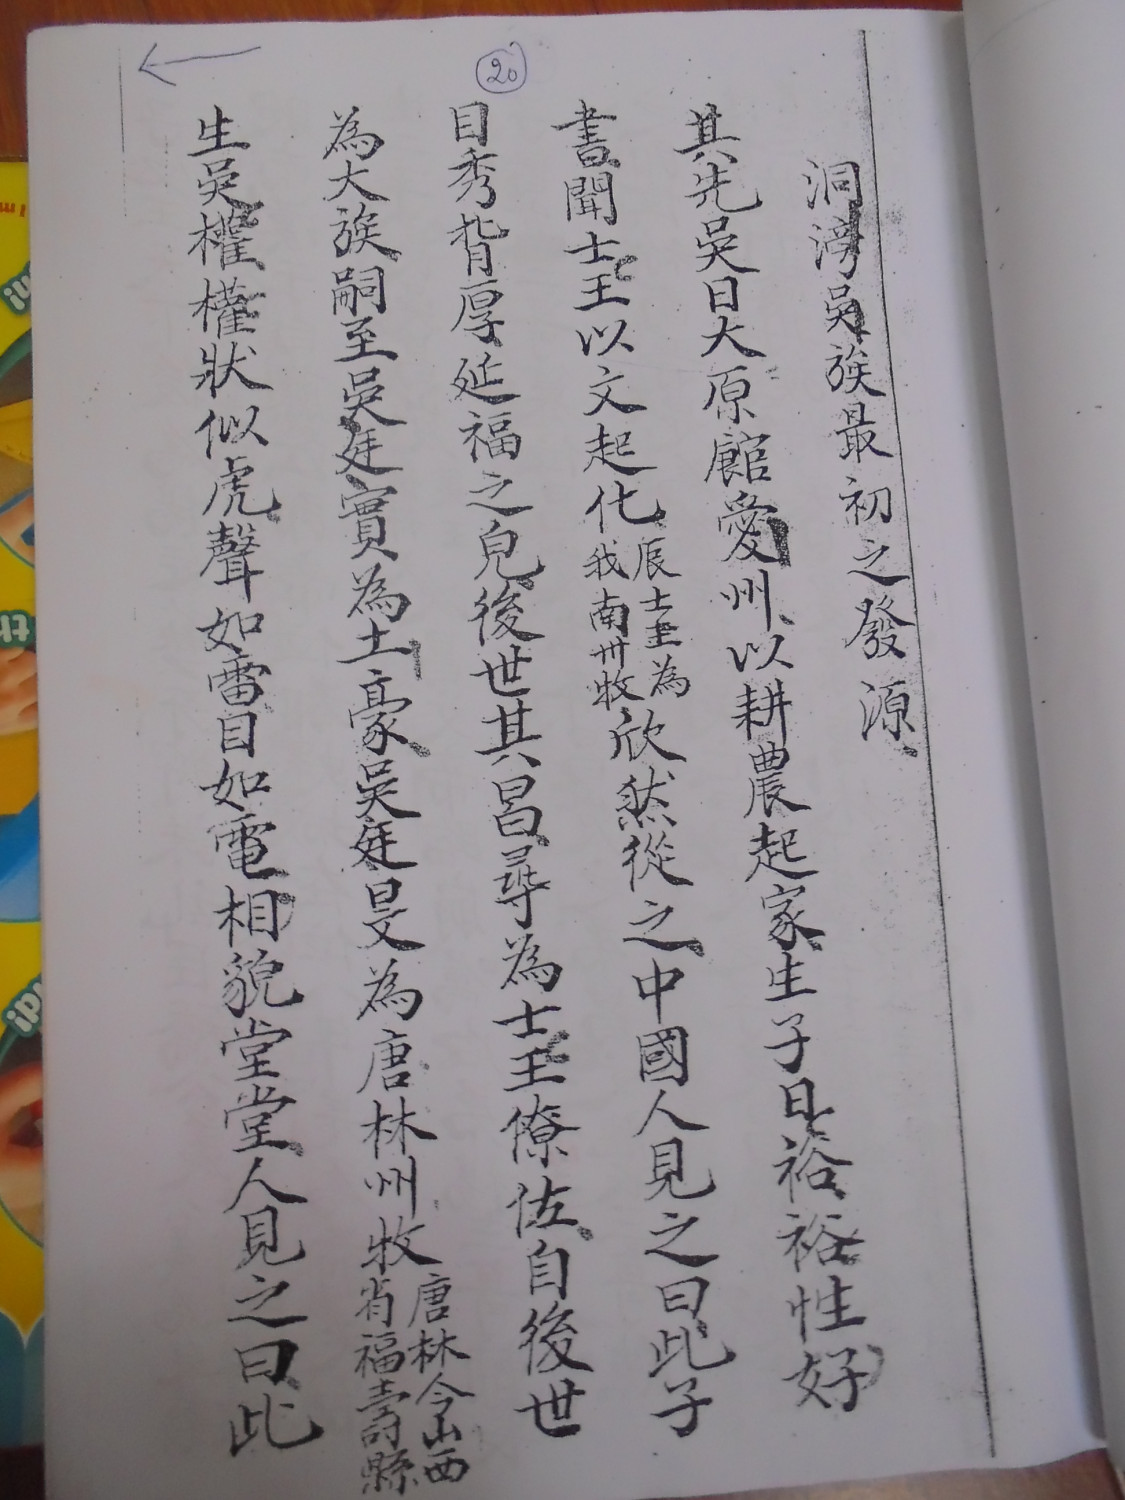 20
洞滂吳族最初之發源
其先吳日大原館愛州以耕農起家生子曰裕裕性好
書聞士王以文起化辰士王為我南州牧欣然從之中國人見之曰此子
目秀背厚延福之皃後世其昌尋為士王僚佐自後世
為大族嗣至吳廷實為土豪吳廷旻為唐林州牧唐林今山西省福壽縣
生吳權權狀似虎聲如雷目如電相貌堂堂人見之曰此